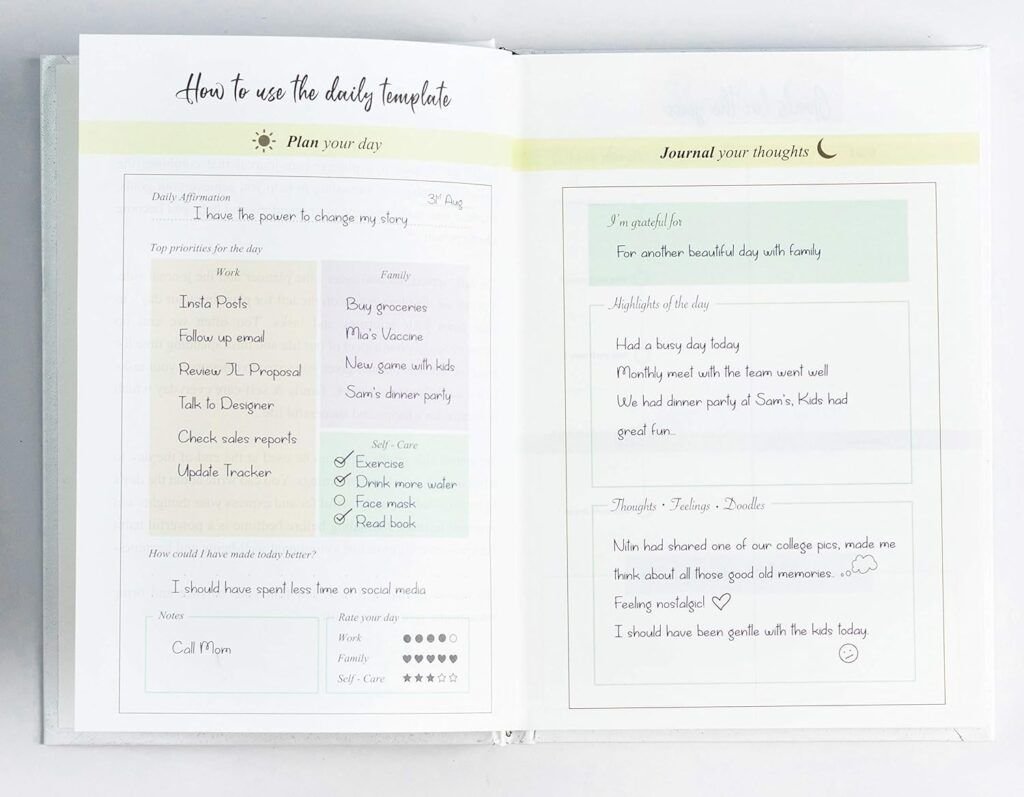 How to use the daily template
Plan your day
Daily Affirmation
31st Aug
I have the power to change my story
Top priorities for the day
Work
Insta Posts
Follow up email
Review JL Proposal
Talk to Designer
Check sales reports
Update Tracker
Family
Buy groceries
Mia's Vaccine
New game with kids
Sam's dinner party
Self - Care
Exercise
Drink more water
Face mask
Read book
How could I have made today better?
I should have spent less time on social media
Notes
Call Mom
Rate your day
Work
Family
Self - Care
Journal your thoughts
I'm grateful for
For another beautiful day with family
Highlights of the day
Had a busy day today
Monthly meet with the team went well
We had dinner party at Sam's, Kids had
great fun..
Thoughts • Feelings • Doodles
Nitin had shared one of our college pics, made me
think about all those good old memories..
Feeling nostalgic!
I should have been gentle with the kids today.